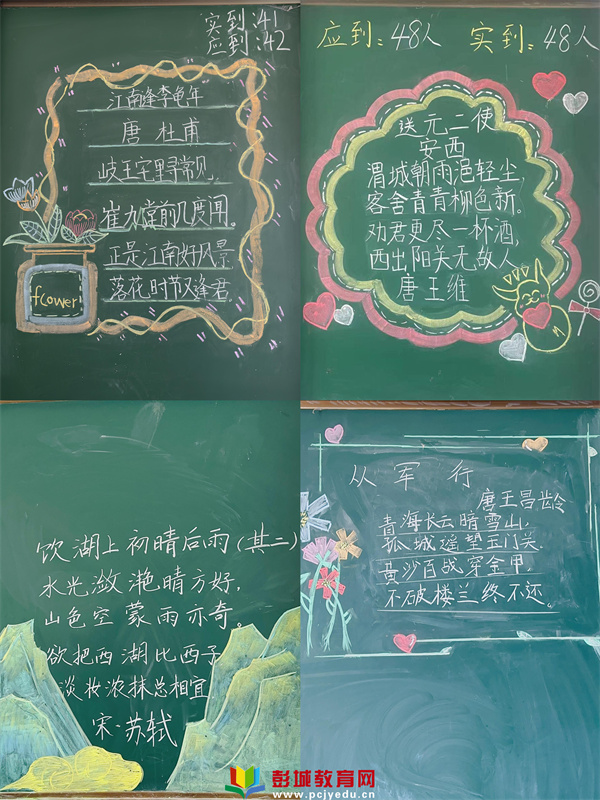 实到:41
应到:42
江南逢李龟年
唐 杜甫
岐王宅里寻常见,
崔九堂前几度闻。
正是江南好风景,
落花时节又逢君.
flower
应到:48人 实到:48人
送元二使
安西
渭城朝雨浥轻尘,
客舍青青柳色新。
劝君更尽一杯酒,
西出阳关无故人
唐 王维
饮湖上初晴后雨(其二)
水光潋滟晴方好,
山色空蒙雨亦奇。
欲把西湖比西子
淡妆浓抹总相宜
宋·苏轼
从军行
唐 王昌龄
青海长云暗雪山,
孤城遥望玉门关.
黄沙百战穿金甲,
不破楼兰终不还。
彭城教育网
www.pcjyedu.cn